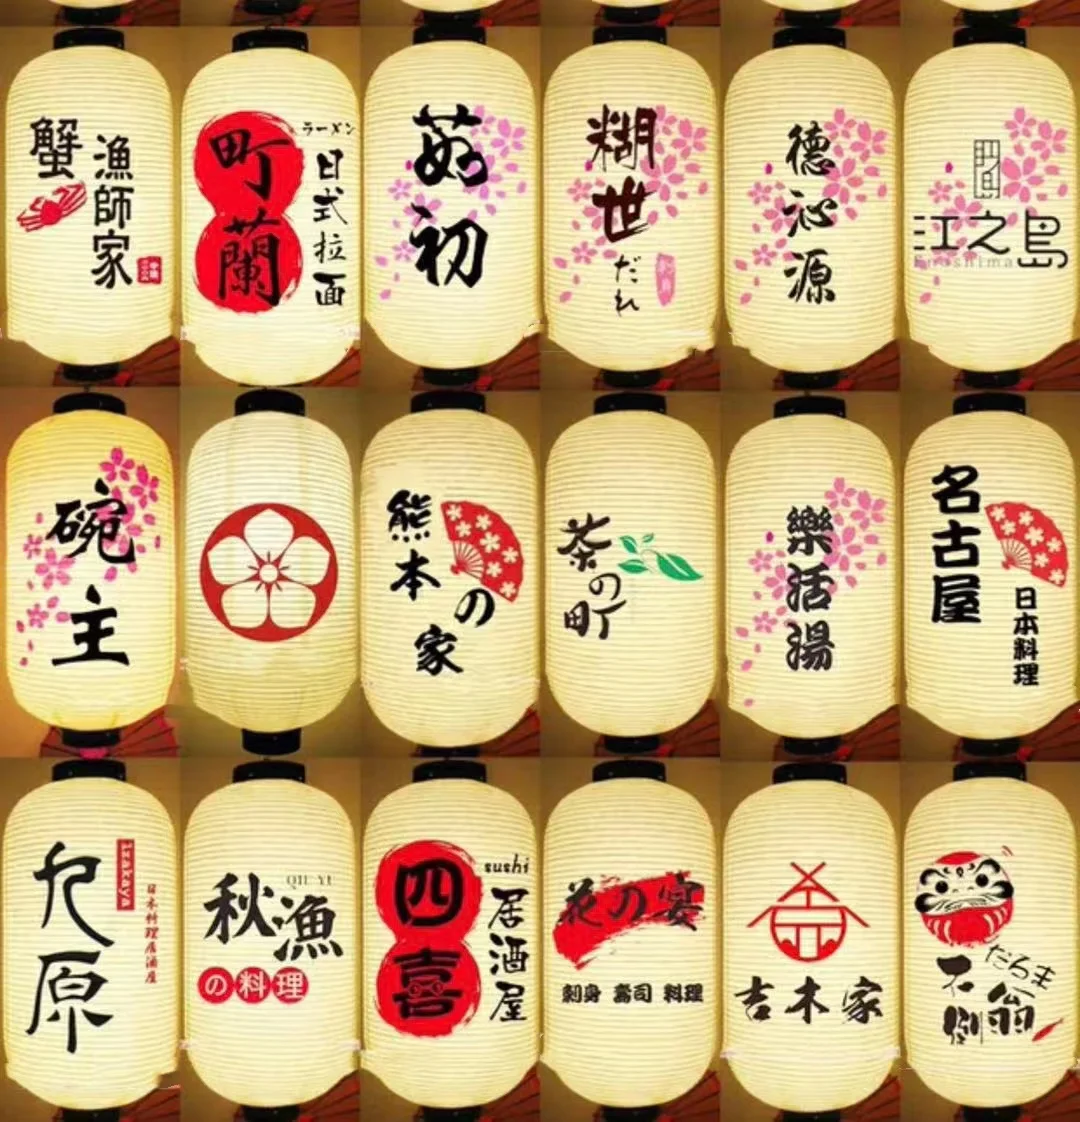 蟹
漁師家
ラーメン
町蘭
日式拉面
茹初
糊世
だれ
德沁源
江之島
Enoshima
碗主
熊本の家
茶の町
樂活湯
名古屋
日本料理
九原
izakaya
日本料理居酒屋
秋漁
QIU YU
の料理
四喜
sushi
居酒屋
花の宴
刺身 壽司 料理
吉木家
だるま
不倒翁